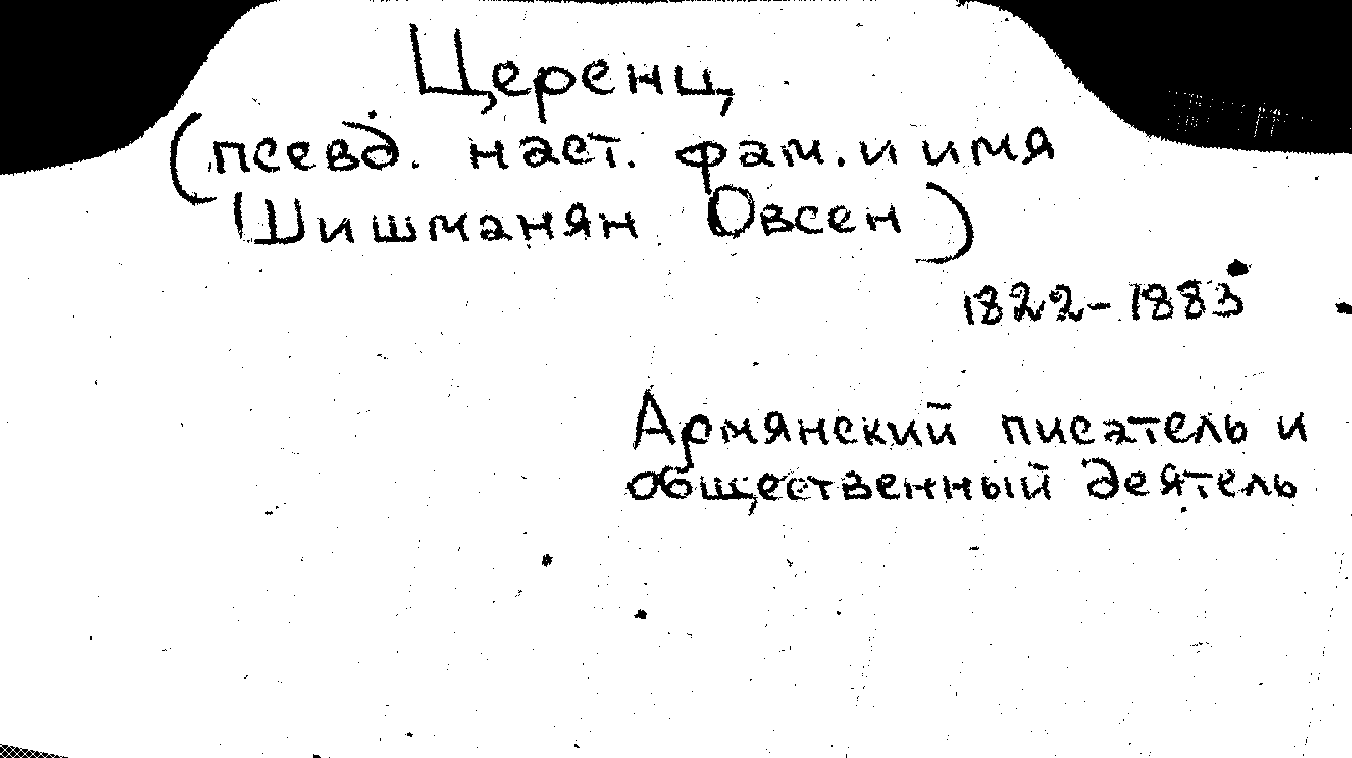 Церенц
(псевд. наст. фам. и имя
Шишманян Овсен)
1822-1883
Армянский писатель и
общественный деятель